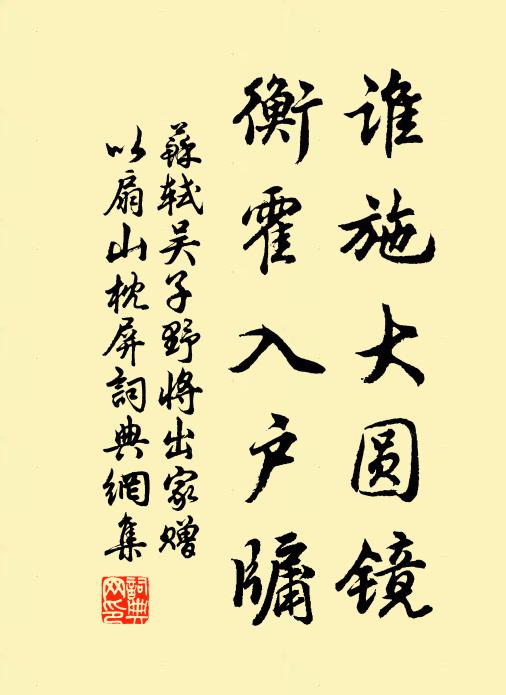 谁施大圆镜
衡霍入户牖
蘇轼吴子野将出家赠
以扇山枕屏詞典網集
詞典网印